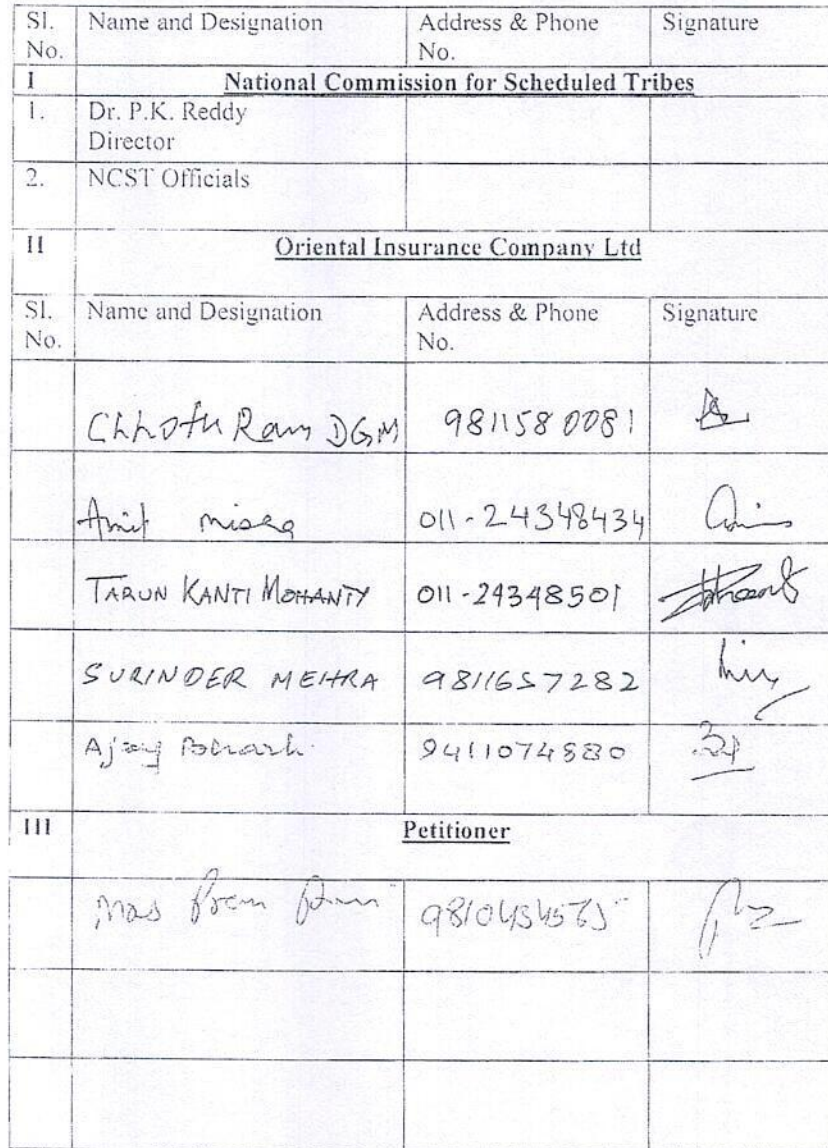 Sl. No. Name and Designation Address & Phone No. Signature
I National Commission for Scheduled Tribes
1. Dr. P.K. Reddy
Director
2. NCST Officials
II Oriental Insurance Company Ltd
Sl. No. Name and Designation Address & Phone No. Signature
Chhotu Ram DGM 9811580081
Amit 011-24348434
TARUN KANTI MOHANTY 011-24348501
SURINDER MEHRA 9811657282
Ajay 9411074880
III Petitioner
Prem